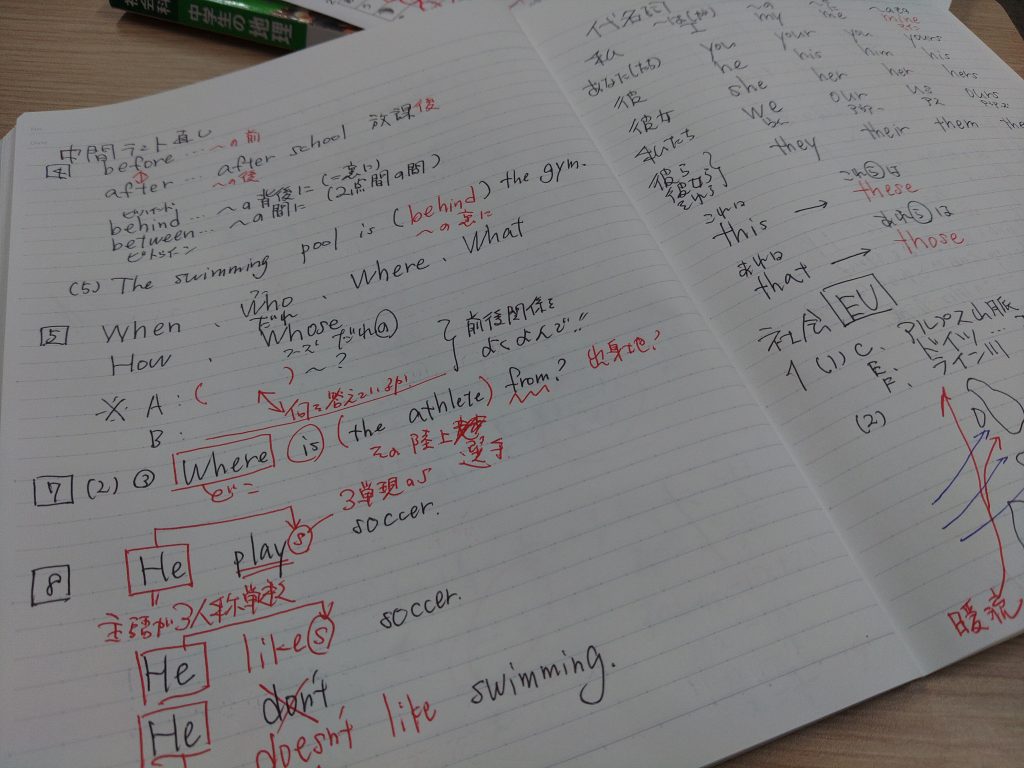 社会科
中学生の地理
中間テスト直し
4 before … 〜の前
after … 〜の後 after school 放課後
ビハインド
behind … 〜の背後に (=裏に)
between … 〜の間に (2点間の間)
ビトウィーン
(5) The swimming pool is (behind) the gym.
〜の裏に
5 When 、 Who 、 Where 、 What
だれ
How 、 Whose
フーズ だれの
〜?
前後関係を
よくよんで!!
※ A : ( ) 〜?
B :
何を答えているか!
7 (2) ③ Where is (the athlete) from? 出身地?
どこ
その陸上選手
8 He plays soccer.
3単現のS
主語が3人称単数
He likes soccer.
He don't
doesn't like swimming.
代名詞
私 my me mine
あなた(たち) you your you yours
彼 he his him his
彼女 she her her hers
私たち we our us ours
彼ら they their them
彼女ら
それら
これは これらは
this → these
あれは あれらは
that → those
社会 EU
1 (1) C. アルプス山脈
E. ドイツ…
F. ライン川
(2)
D
暖流